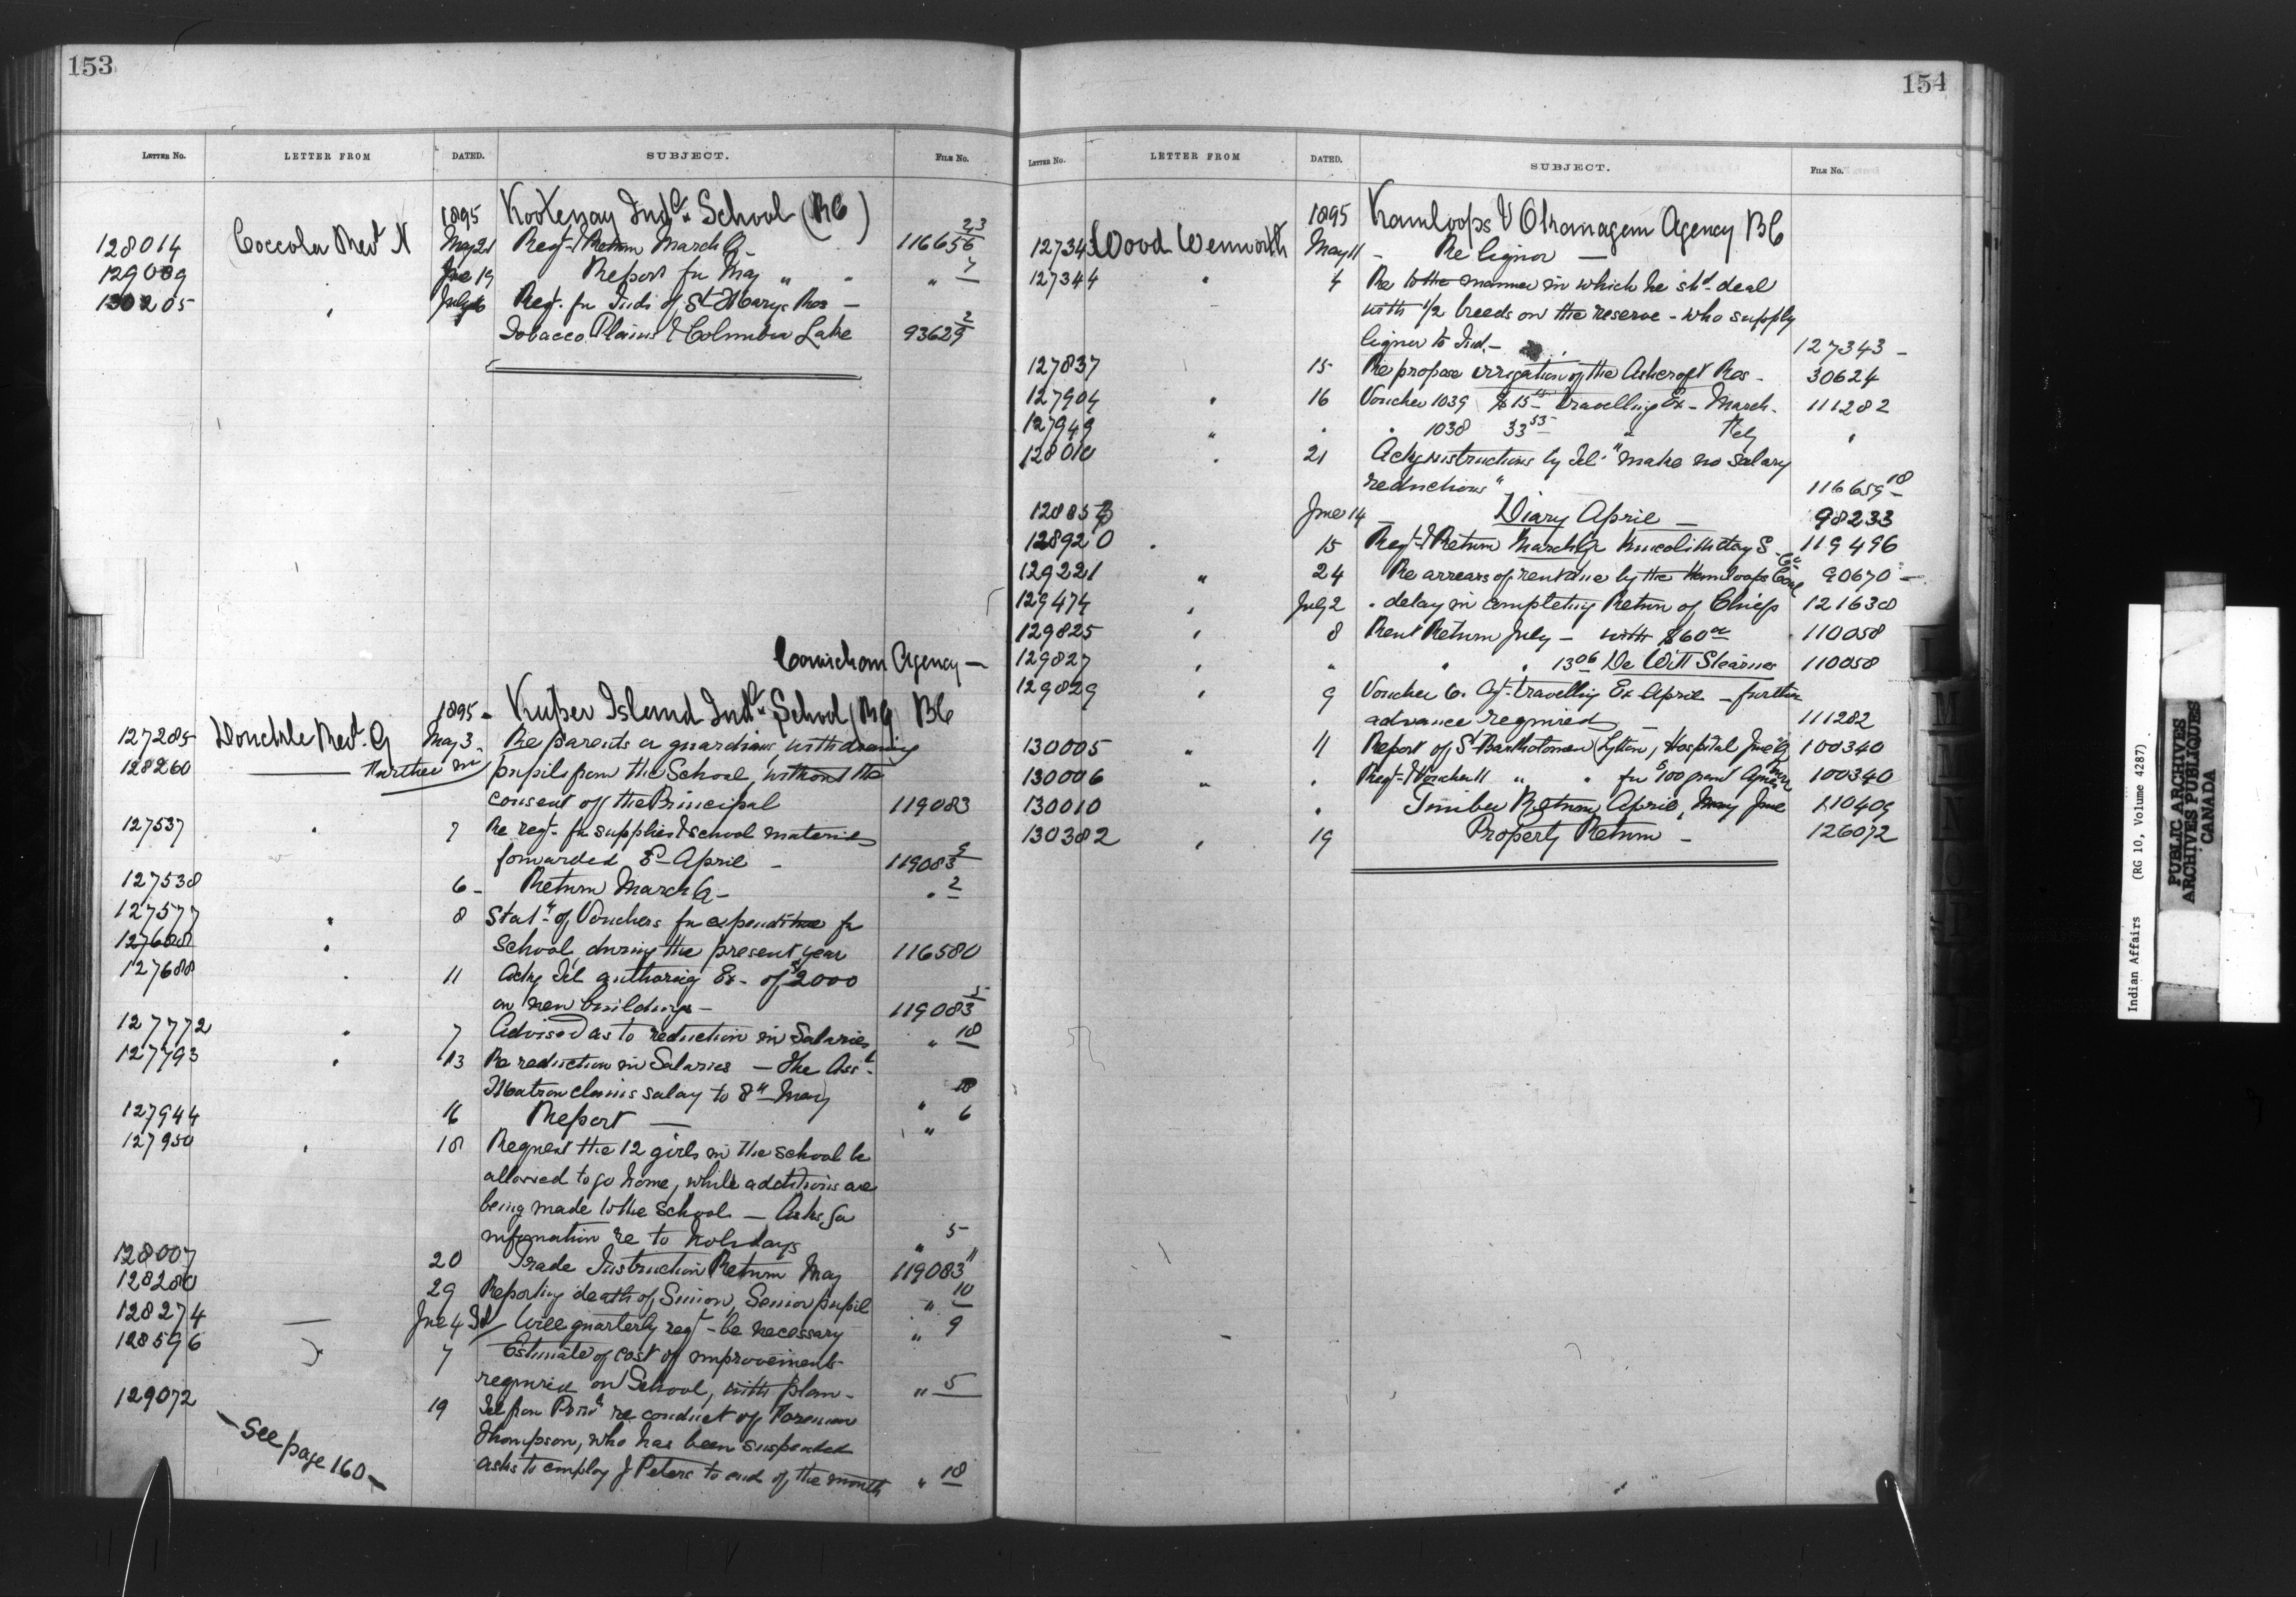 153
LETTER No. LETTER FROM DATED. SUBJECT. FILE No.
1895 Kootenay Indl. School (RC)
128014 Coccola Revd N May 21 Reqt. & Return March Q. 116656 23
129089 " June 19 " Report for May " " " 7
130205 " July 6 Reqt. for Inds of St Marys Res —
Tobacco Plains & Columbia Lake 93629 2
Cowichan Agency —
1895 - Kuper Island Indl. School (RC) BC
127285 Donckele Revd. G May 3 - Re parents or guardians withdrawing
128260 —— Further in pupils from the School, without the
consent of the Principal 119083
127537 " 7 Re reqt. for supplies & school material
forwarded in April — 119083 9
127538 6 - Return March Q - " 2
127577 " 8 Statt. of Vouchers for expenditure for
127608 " school, during the present year 116580
127688 " 11 Ackg Tel authorizing Ex. of $2000
on new buildings — 119083 5
127772 " 7 Advised as to reduction in Salaries " 18
127793 " 13 Re reduction in Salaries — the Asst.
Matron claims salary to 8th May " 18
127944 16 Report — " 6
127950 " 18 Request the 12 girls in the school be
allowed to go home, while additions are
being made to the School — Asks for
information re to holidays " 5
128007 20 Trade Instruction Return May 119083 11
128280 29 Reporting death of Simon, Senior pupil " 10
128274 — June 4 Tel Will quarterly reqt - be necessary " 9
128596 " 7 Estimate of cost of improvements
required on School, with plan - " 5
129072 19 Tel from re conduct of Foreman
Thompson, who has been suspended
asks to employ J Peters to end of the month " 18
— See page 160 —
154
LETTER No. LETTER FROM DATED. SUBJECT. FILE No.
1895 Kamloops & Okanagan Agency BC
127343 Wood Wenworth May 11 - Re liquor —
127344 " 4 Re to the manner in which he shd. deal
with 1/2 breeds on the reserve - who supply
liquor to Ind. - 127343 -
127837 15 Re propose irrigation of the Ashcroft Res - 30624
127904 " 16 Voucher 1039 $15 Travelling Ex - March - 111282
127949 " " " 1038 33 53 " Feby "
128010 " 21 Ackg instructions by Tel "make no salary
reductions" 116659 18
128853 June 14 — Diary April — 98233
128920 " 15 Reqt. & Return March Q Kincolith Day S - 119496
129221 " 24 Re arrears of rent due by the Kamloops Coal Co 90670 -
129474 " July 2 " delay in completing Return of Chiefs 121638
129825 " 8 Rent Return July — with $60 00 110058
129827 " " " " 13 06 De Witt Stearnes 110058
129829 " 9 Voucher 6. Agt. travelling Ex April — further
advance required — 111282
130005 " 11 Report of St Bartholomew (Lytton) Hospital June Q 100340
130006 " " Reqt. & Voucher 11 " " for $100 grant 100340
130010 " Timber Return April, May June 110409
130382 " 19 Property Return — 126072
L
M
N
Indian Affairs (RG 10, Volume 4287)
PUBLIC ARCHIVES
ARCHIVES PUBLIQUES
CANADA